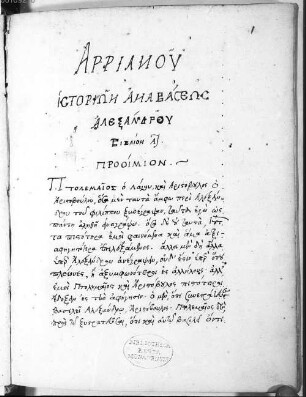 ΑΡΡΙΑΝΟΥ
ἱΣΤΟΡΙΩΝ ΑΝΑΒΆΣΕΩΣ
ἈΛΕΞΆΝΔΡΟΥ
ΒΙΒΛΙΟΝ Α
ΠΡΟΟΙΜΙΟΝ
Πτολεμαῖος ὁ Λάγου, καὶ Ἀριστόβουλος ὁ
Ἀριστοβούλου, ὅσα μὲν ταυτὰ ἄμφω περὶ Ἀλεξάν
δρου τοῦ φιλίππου ξυνέγραψαν, ταῦτα ἐγὼ ὡς
πάντη ἀληθῆ ἀναγράφω. ὅσα δ᾽ οὐ ταυτὰ,
τὰ πιστότερα ἐμοὶ φαινόμενα καὶ ἅμα ἀξι
αφηγητότερα ἐπιλεξάμενος. ἄλλοι μὲν δὴ ἄλλα
ὑπὲρ Ἀλεξάνδρου ἀνέγραψαν, οὐδ᾽ ἔστιν ὑπὲρ ὅτου
πλείονες, ἢ ἀξυμφωνότεροι ἐς ἀλλήλους. ἀλλ᾽
ἐμοὶ Πτολεμαῖός τε καὶ Ἀριστόβουλος πιστότεροι
ἔδοξαν ἐς τὴν ἀφήγησιν. ὁ μὲν, ὅτι
βασιλεῖ Ἀλεξάνδρῳ, Ἀριστόβουλος. Πτολεμαῖος δὲ,
πρὸς τῷ ξυστρατεῦσαι, ὅτι καὶ αὐτῷ βασιλεῖ ὄντι
BIBLIOTHECA
REGIA
MONACENSIS